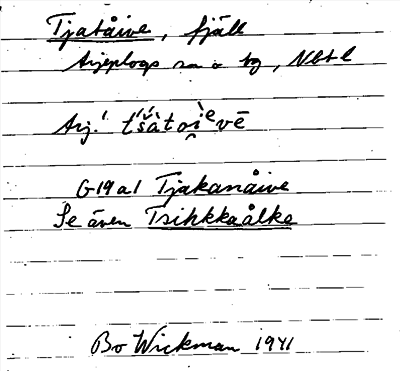 Tjatåive, fjäll
Arjeplogs sn o tg, Nbtl
Arj.
G19a1 Tjakanåive
Se även Tsihkkaålke
Bo Wickman 1941